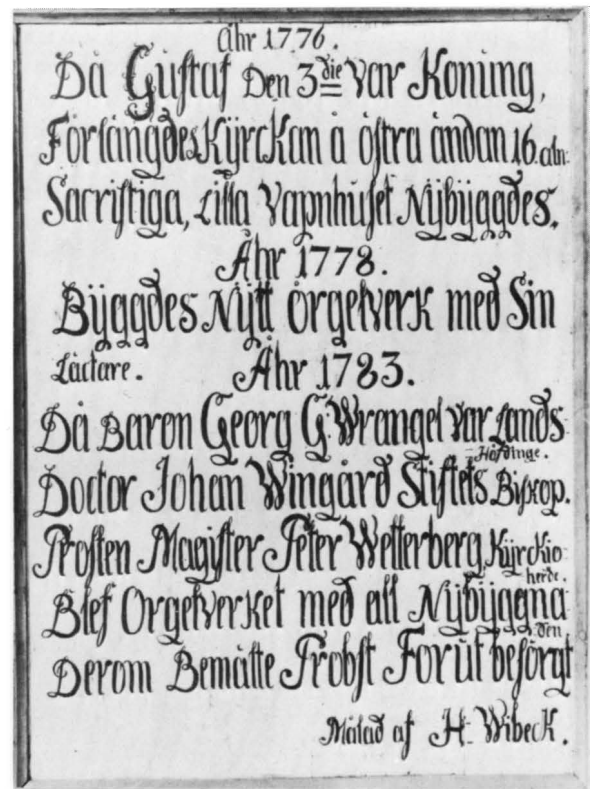 Ahr 1776.
Då Gustaf Den 3die Var Koning,
Förlängdes Kÿrckan å östra ändan 16. aln:
Sacristiga, Lilla Vapnhuset Nÿbÿggdes.
Åhr 1778.
Bÿggdes Nÿtt örgelverk med Sin
Läctare. Åhr 1783.
Då Baron Georg G. Wrangel var Lands
Höfdinge.
Doctor Johan Wingård Stiftets Biskop.
Prosten Magister Peter Wetterberg Kÿrckio
herde.
Blef Orgelverket med all Nÿbÿggna
den
Derom Bemätte Probst Förut besörgt
Målad af H. Wibeck.